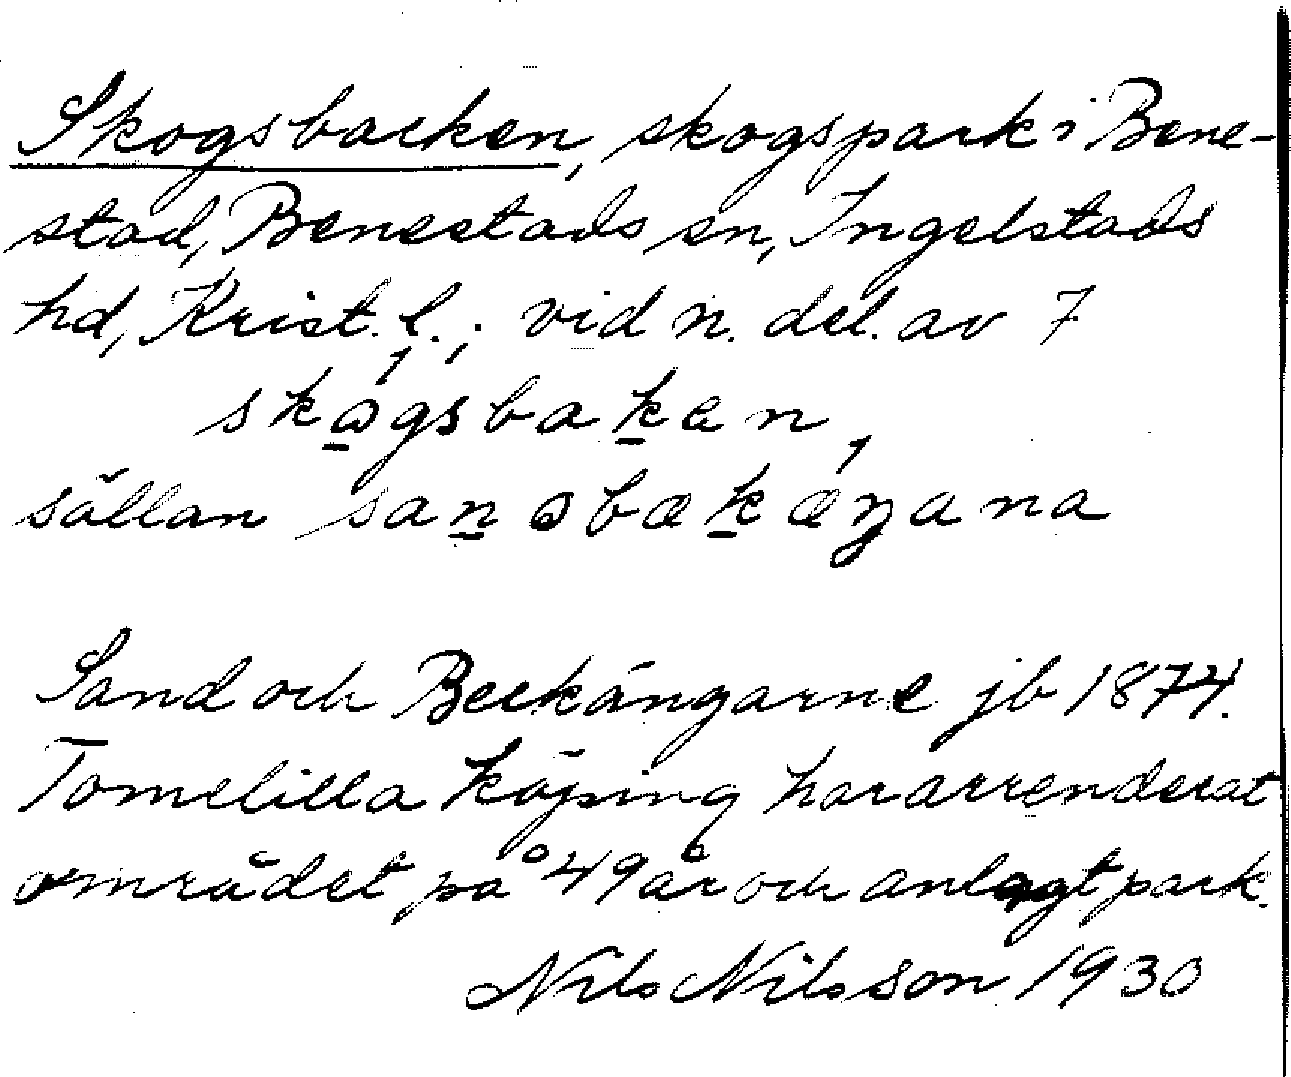 Skogsbacken, skogspark i Bene-
stad, Benestads sn, Ingelstads
hd, Krist. l.; vid n. del. av 7
skogsbakæn,
sällan sanobækæŋana
Sand och Beckängarne jb 1874.
Tomelilla köping har arrenderat
området på 49 år och anlagt park.
Nils Nilsson 1930